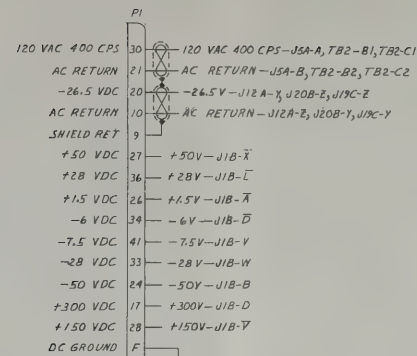 P1
120 VAC 400 CPS 30 120 VAC 400 CPS-J5A-A, TB2-B1, TB2-C1
AC RETURN 21 AC RETURN-J5A-B, TB2-B2, TB2-C2
-26.5 VDC 20 -26.5V-J12A-Y, J20B-Z, J19C-Z
AC RETURN 10 AC RETURN-J12A-Z, J20B-Y, J19C-Y
SHIELD RET 9
+50 VDC 27 +50V-J1B-X̄
+28 VDC 36 +28V-J1B-L̄
+1.5 VDC 26 +1.5V-J1B-Ā
-6 VDC 34 -6V-J1B-D̄
-7.5 VDC 41 -7.5V-J1B-V
-28 VDC 33 -28V-J1B-W
-50 VDC 24 -50V-J1B-B
+300 VDC 17 +300V-J1B-D
+150 VDC 28 +150V-J1B-V̄
DC GROUND F